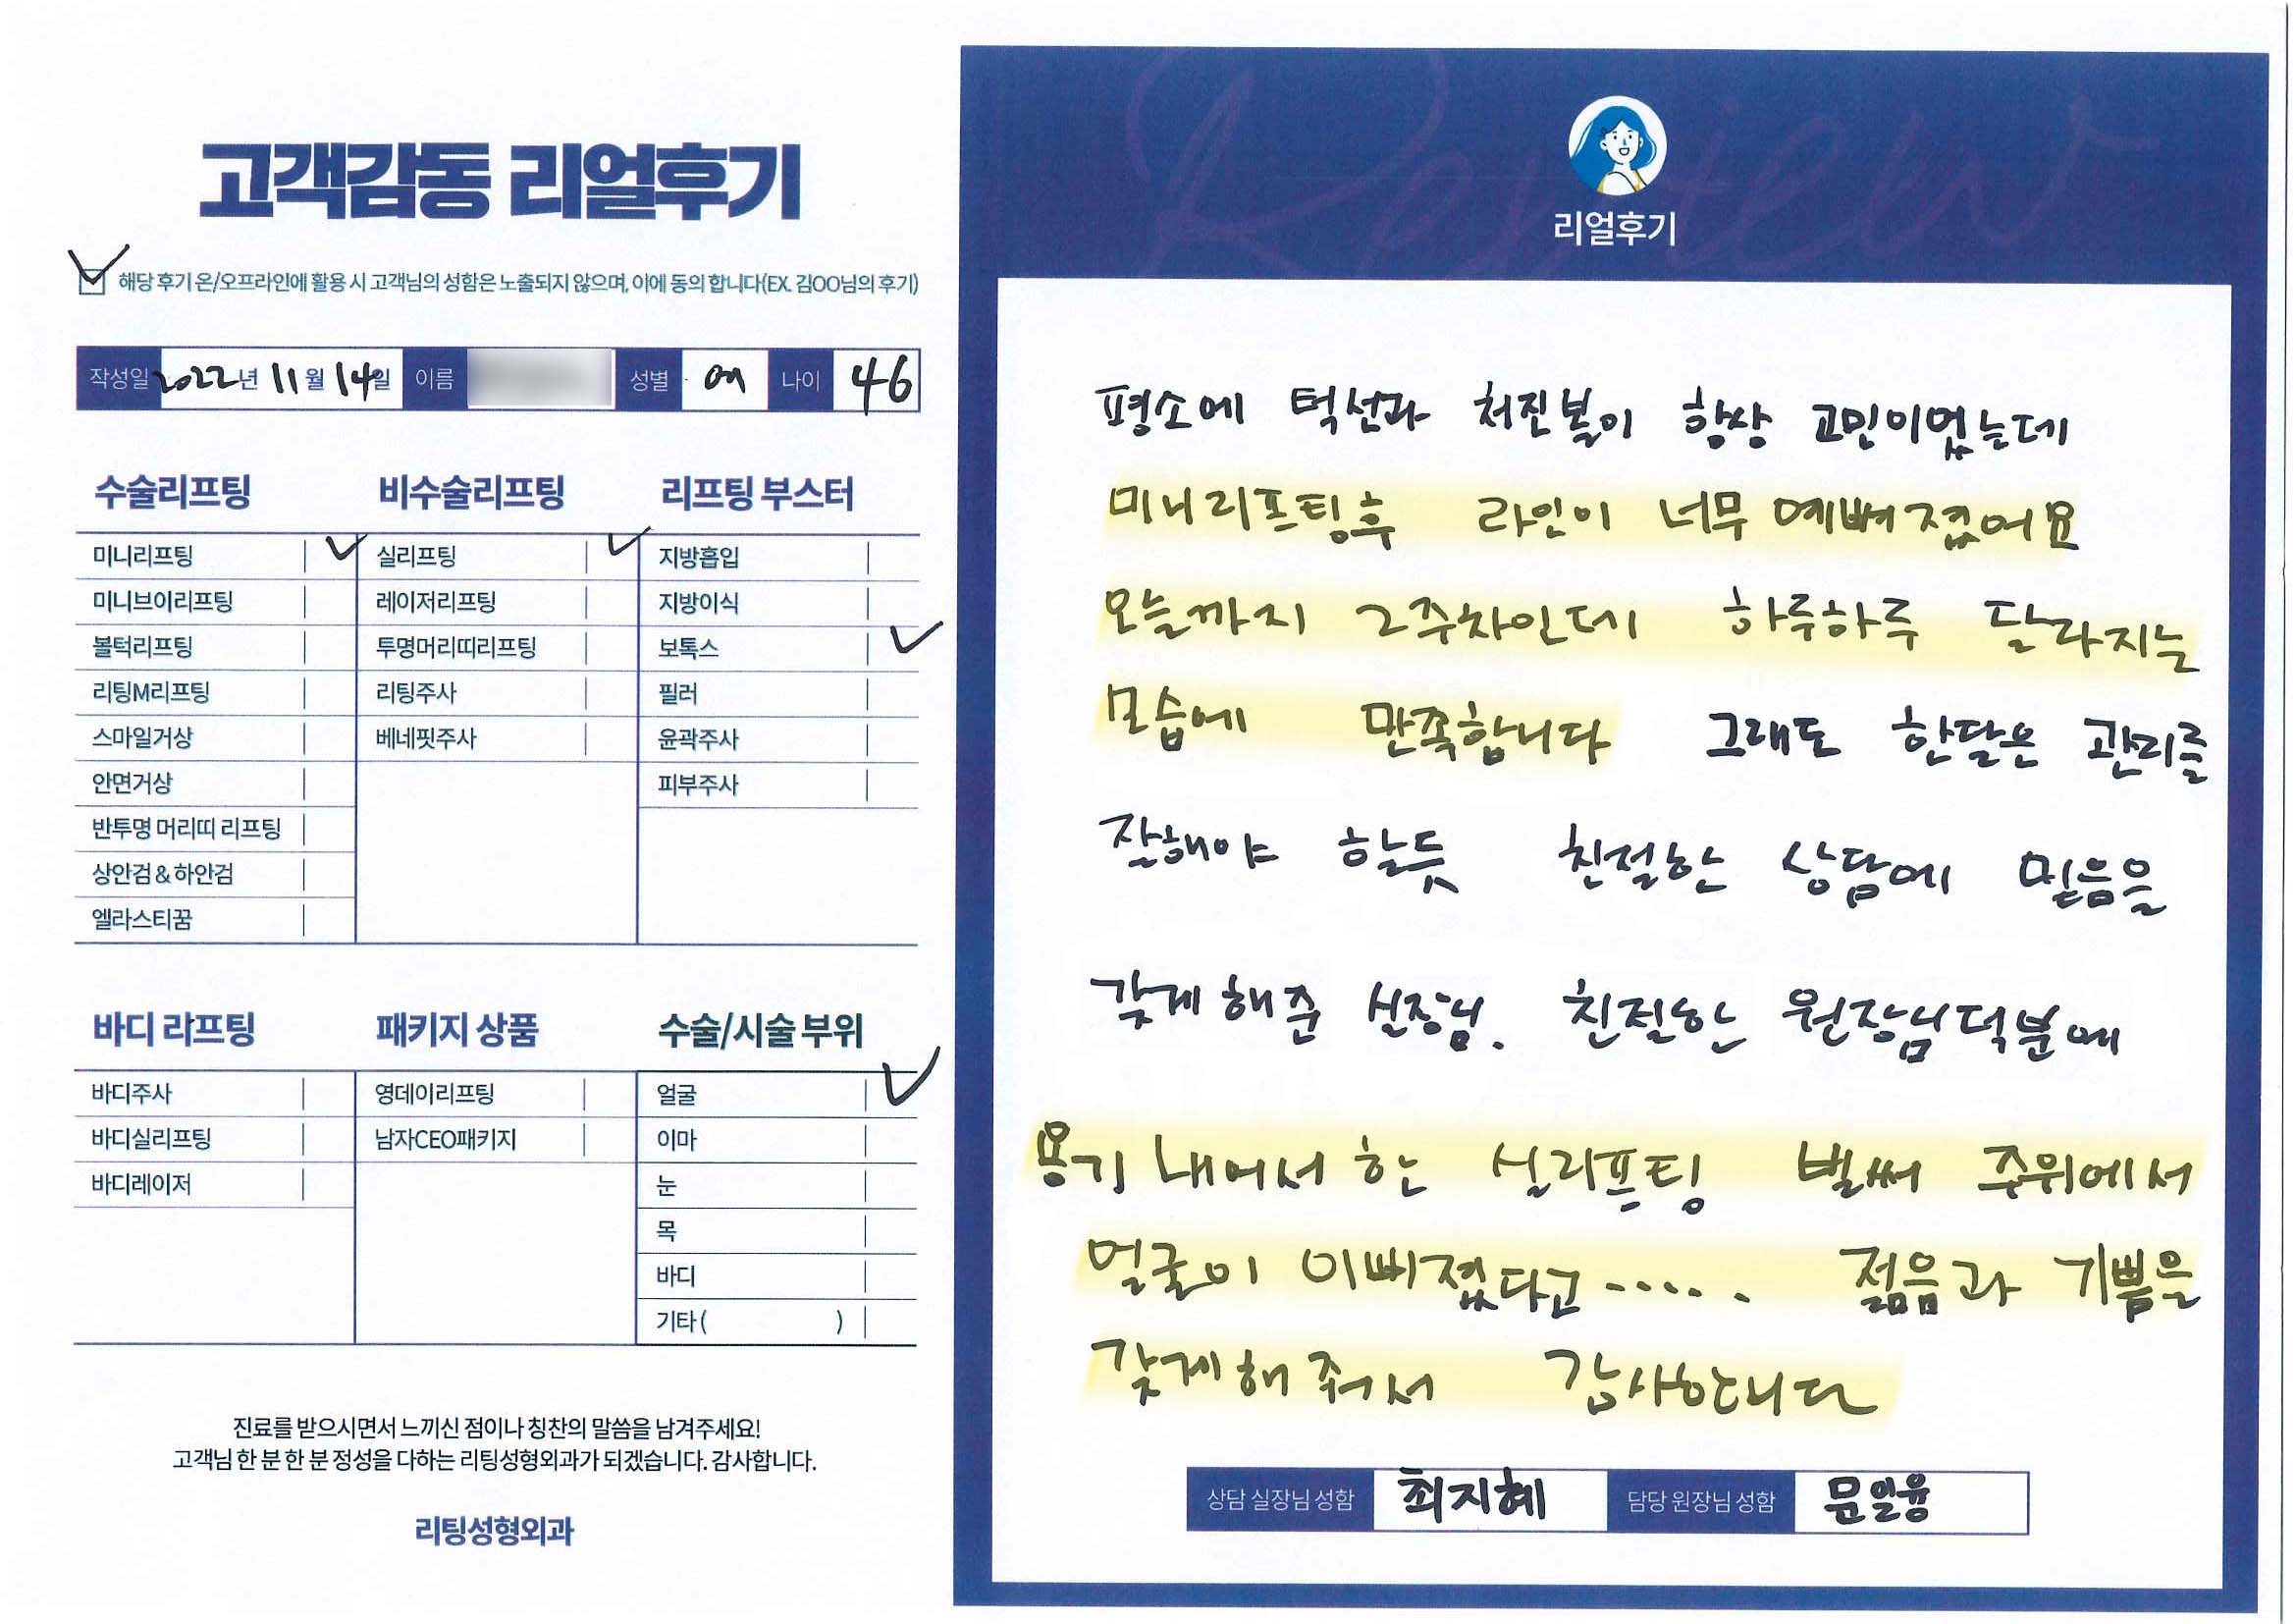 고객감동 리얼후기
해당 후기 온/오프라인에 활용 시 고객님의 성함은 노출되지 않으며, 이에 동의 합니다(EX. 김OO님의 후기)
작성일 2022년 11월 14일 이름 성별 여 나이 46
수술리프팅
미니리프팅
미니브이리프팅
볼턱리프팅
리팅M리프팅
스마일거상
안면거상
반투명 머리띠 리프팅
상안검 & 하안검
엘라스티꿈
비수술리프팅
실리프팅
레이저리프팅
투명머리띠리프팅
리팅주사
베네핏주사
리프팅 부스터
지방흡입
지방이식
보톡스
필러
윤곽주사
피부주사
바디 리프팅
바디주사
바디실리프팅
바디레이저
패키지 상품
영데이리프팅
남자CEO패키지
수술/시술 부위
얼굴
이마
눈
목
바디
기타 ( )
진료를 받으시면서 느끼신 점이나 칭찬의 말씀을 남겨주세요!
고객님 한 분 한 분 정성을 다하는 리팅성형외과가 되겠습니다. 감사합니다.
리팅성형외과
Review
리얼후기
평소에 턱선과 처진볼이 항상 고민이었는데
미니리프팅후 라인이 너무 예뻐졌어요
오늘까지 2주차인데 하루하루 달라지는
모습에 만족합니다 그래도 한달은 관리를
잘해야 할듯 친절한 상담에 믿음을
갖게 해준 실장님. 친절한 원장님덕분에
용기 내어서 한 실리프팅 벌써 주위에서
얼굴이 이뻐졌다고..... 젊음과 기쁨을
갖게해 줘서 감사합니다
상담 실장님 성함 최지혜 담당 원장님 성함 문일융